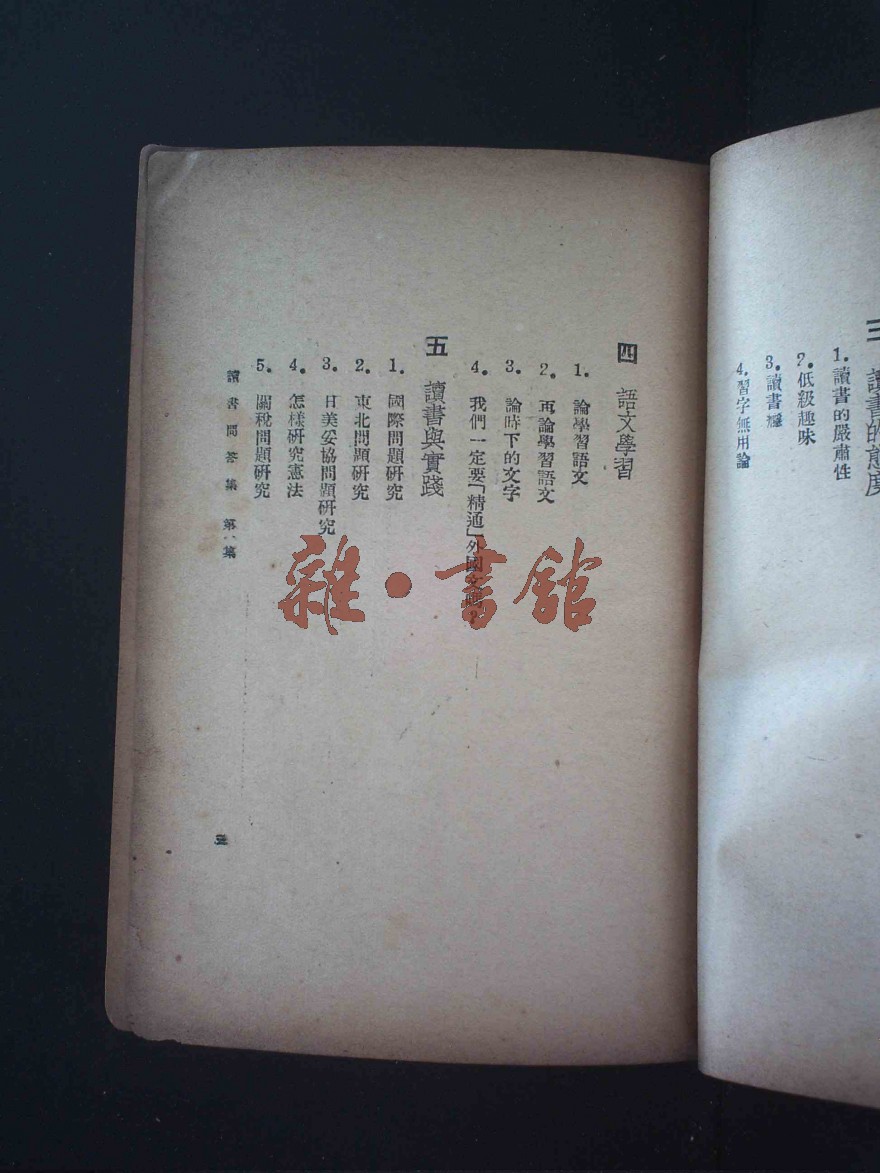 三 讀書的態度
1. 讀書的嚴肅性
2. 低級趣味
3. 讀書癮
4. 習字無用論
四 語文學習
1. 論學習語文
2. 再論學習語文
3. 論時下的文字
4. 我們一定要「精通」外國文嗎？
五 讀書與實踐
1. 國際問題研究
2. 東北問題研究
3. 日美妥協問題研究
4. 怎樣研究憲法
5. 關稅問題研究
讀書問答集 第一集
三
雜·書館